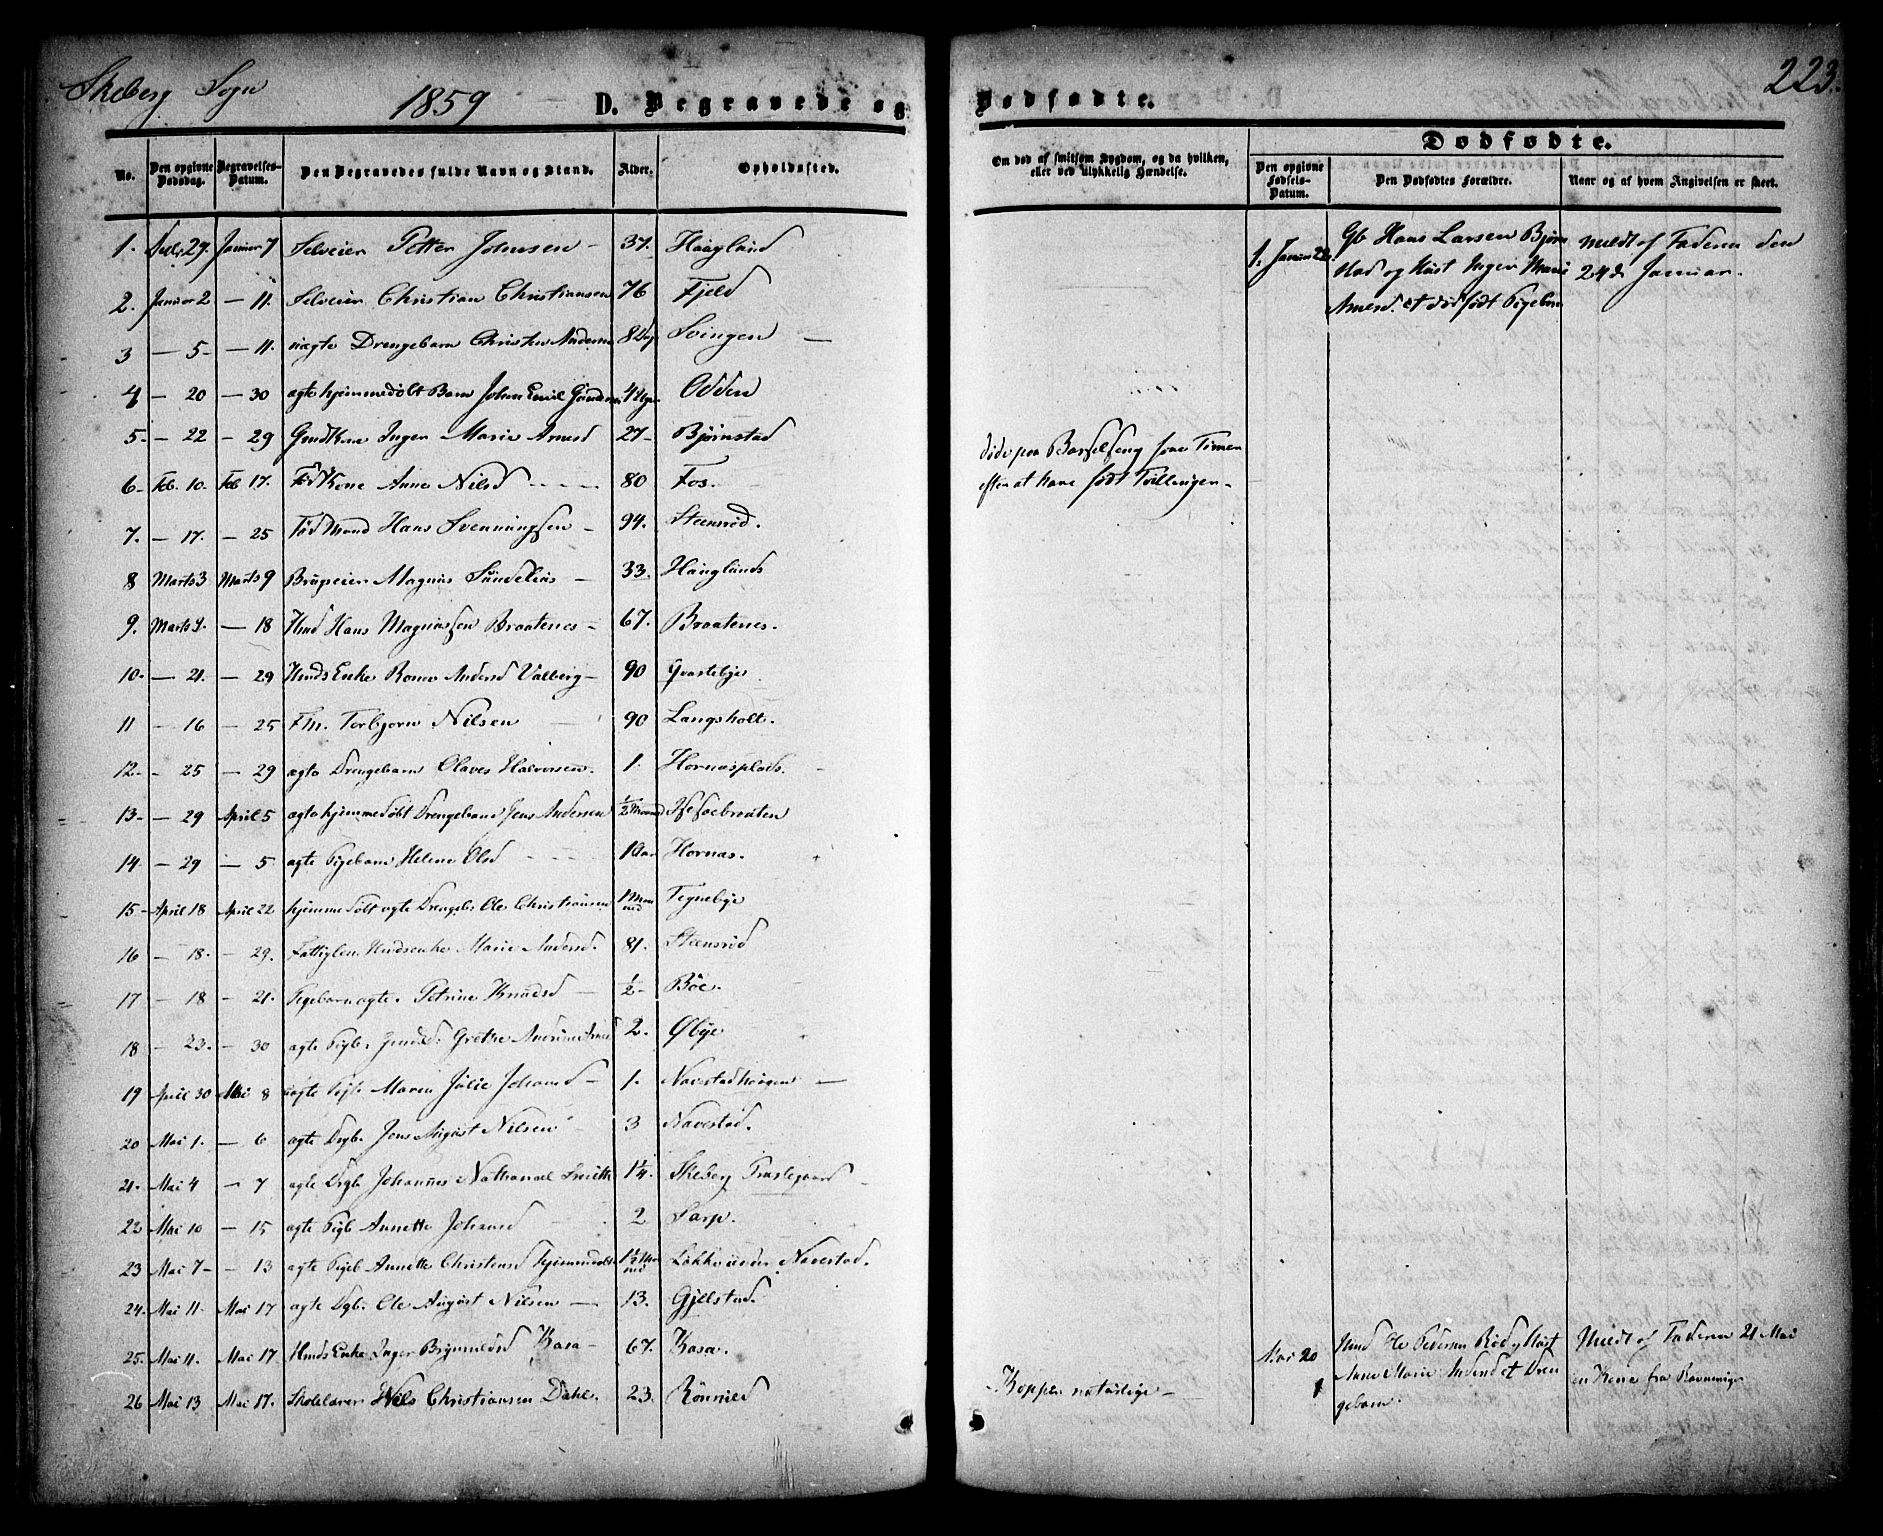 Skeberg Sogn 1859 D. Begravede og Dødfødte. 223.
No. Den opgivne Dødsdag. Begravelses-Datum. Den Begravedes fulde Navn og Stand. Alder. Opholdssted. Om død af smitsom Sygdom, og da hvilken, eller ved ulykkelig Hændelse. Dødfødte.
Den opgivne Fødsels-Datum. Den Dødfødtes Forældre. Naar og af hvem Angivelsen er skeet.
1. 29. Januar 7 Selveier Petter Johnsen 37. Haagland
1. Januar 22. Gb Hans Larsen Bjørn
stad og Inger Marie
Arnesd. et dødfødt Pigebarn
meldt af Faderen den
24de Januar.
2. Januar 2 — 11. Selveier Christian Christiansen 76 Fjeld
3 — 5 — — 11. uægte Drengebarn Christen 8 Svingen
4 — 20 — 30 ægte hjemmedøbt Barn Johan Emil 4 Odden
5 — 22 — 29 Inger Marie Arnesd 27 Bjørnstad
døde paa Barselseng Timer
efter at have født Tvillinger
6 Feb. 10. Feb 17. Kone Anne Nilsd 80 Fos.
7. — 17. — 25 Mand Hans Svenningsen 94. Steensrød.
8 Marts 3 Marts 9 Magnus 33. Haaglunds
9. Marts 9. — 18 Hmd Hans Magnussen Braatenes 67. Braatenes.
10. — 21. — 29 Hmds Enke Andersd Valberg 90 Qvastebye
11 — 16 — 25 Fm. Torbjørn Nilsen 90 Langsholt.
12. — 25 — 29 ægte Drengebarn Olaves Halvorsen. 1. Hornæsplads.
13 — 29 April 5 ægte hjemmedøbt Drengebarn Jens Andersen 1/2 Maaned
14 — 29 — 5 ægte Pigebarn Helene Olsd 1 Aar Hornæs.
15 April 18 April 22 hjemmedøbt ægte Drengeb. Ole Christiansen 1 Maaned Tegnebye
16 — 18. — 29. Fattiglem Hmdsenke Marie Andersd. 81. Steensrød
17 — 18 — 21. Pigebarn ægte. Petrine Knudsd 1/2 Böe.
18 — 23. — 30 ægte Pigb. Grethe 2. Øbye
19 April 30 Mai 8 Maren Julie Johansd 1. Navestadhøigen
20 Mai 1. — 6 ægte Drgb. Jens August Nilsen 3 Navestad.
21. Mai 4 — 7 ægte Drgb Johannes Nathanael Smith 1¼. Skeberg Præstegaard
22 Mai 10 — 15 ægte Pigb Annette Johansd 2 Sarp.
23 Mai 7 — 13 ægte Pigeb Annette Christensd hjemmedøbt 1½ Maaned Løkke under Navestad.
24. Mai 11. Mai 17 ægte Dgb. Ole August Nilsen 13. Gjelstad.
25. Mai 11. Mai 17 Hmds Enke Inger Brynnildsd Kasa 67. Kasa.
Mai 20 Hmd Ole Pedersen
Anne Marie et Dren
gebarn.
Meldt af Faderen 21 Mai
26 Mai 13 Mai 17. Skolelærer Nils Christiansen Dahl. 23. Rönnild
Kopper naturlige